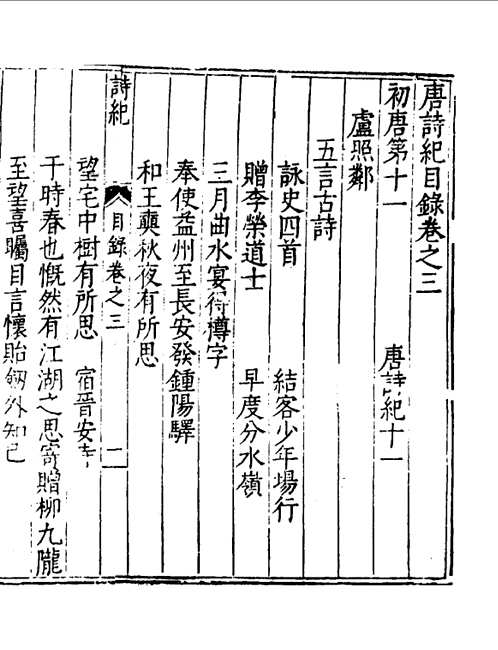 唐詩紀目錄卷之三
初唐第十一　唐詩紀十一
盧照鄰
五言古詩
詠史四首　結客少年場行
贈李榮道士　早度分水嶺
三月曲水宴得樽字
奉使益州至長安發鍾陽驛
和王奭秋夜有所思
詩紀　目錄卷之三　一
望宅中樹有所思　宿晉安寺
于時春也慨然有江湖之思寄贈柳九隴
至望喜矚目言懷貽劔外知己